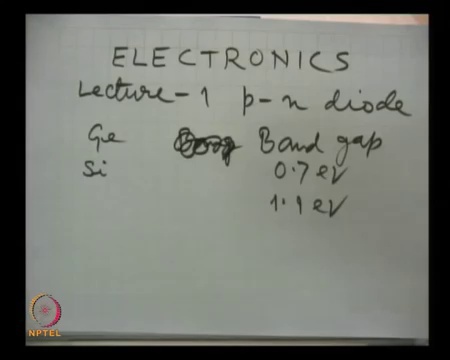 ELECTRONICS
Lecture - 1 p-n diode
Ge Band gap
Si 0.7 eV
1.1 eV
NPTEL